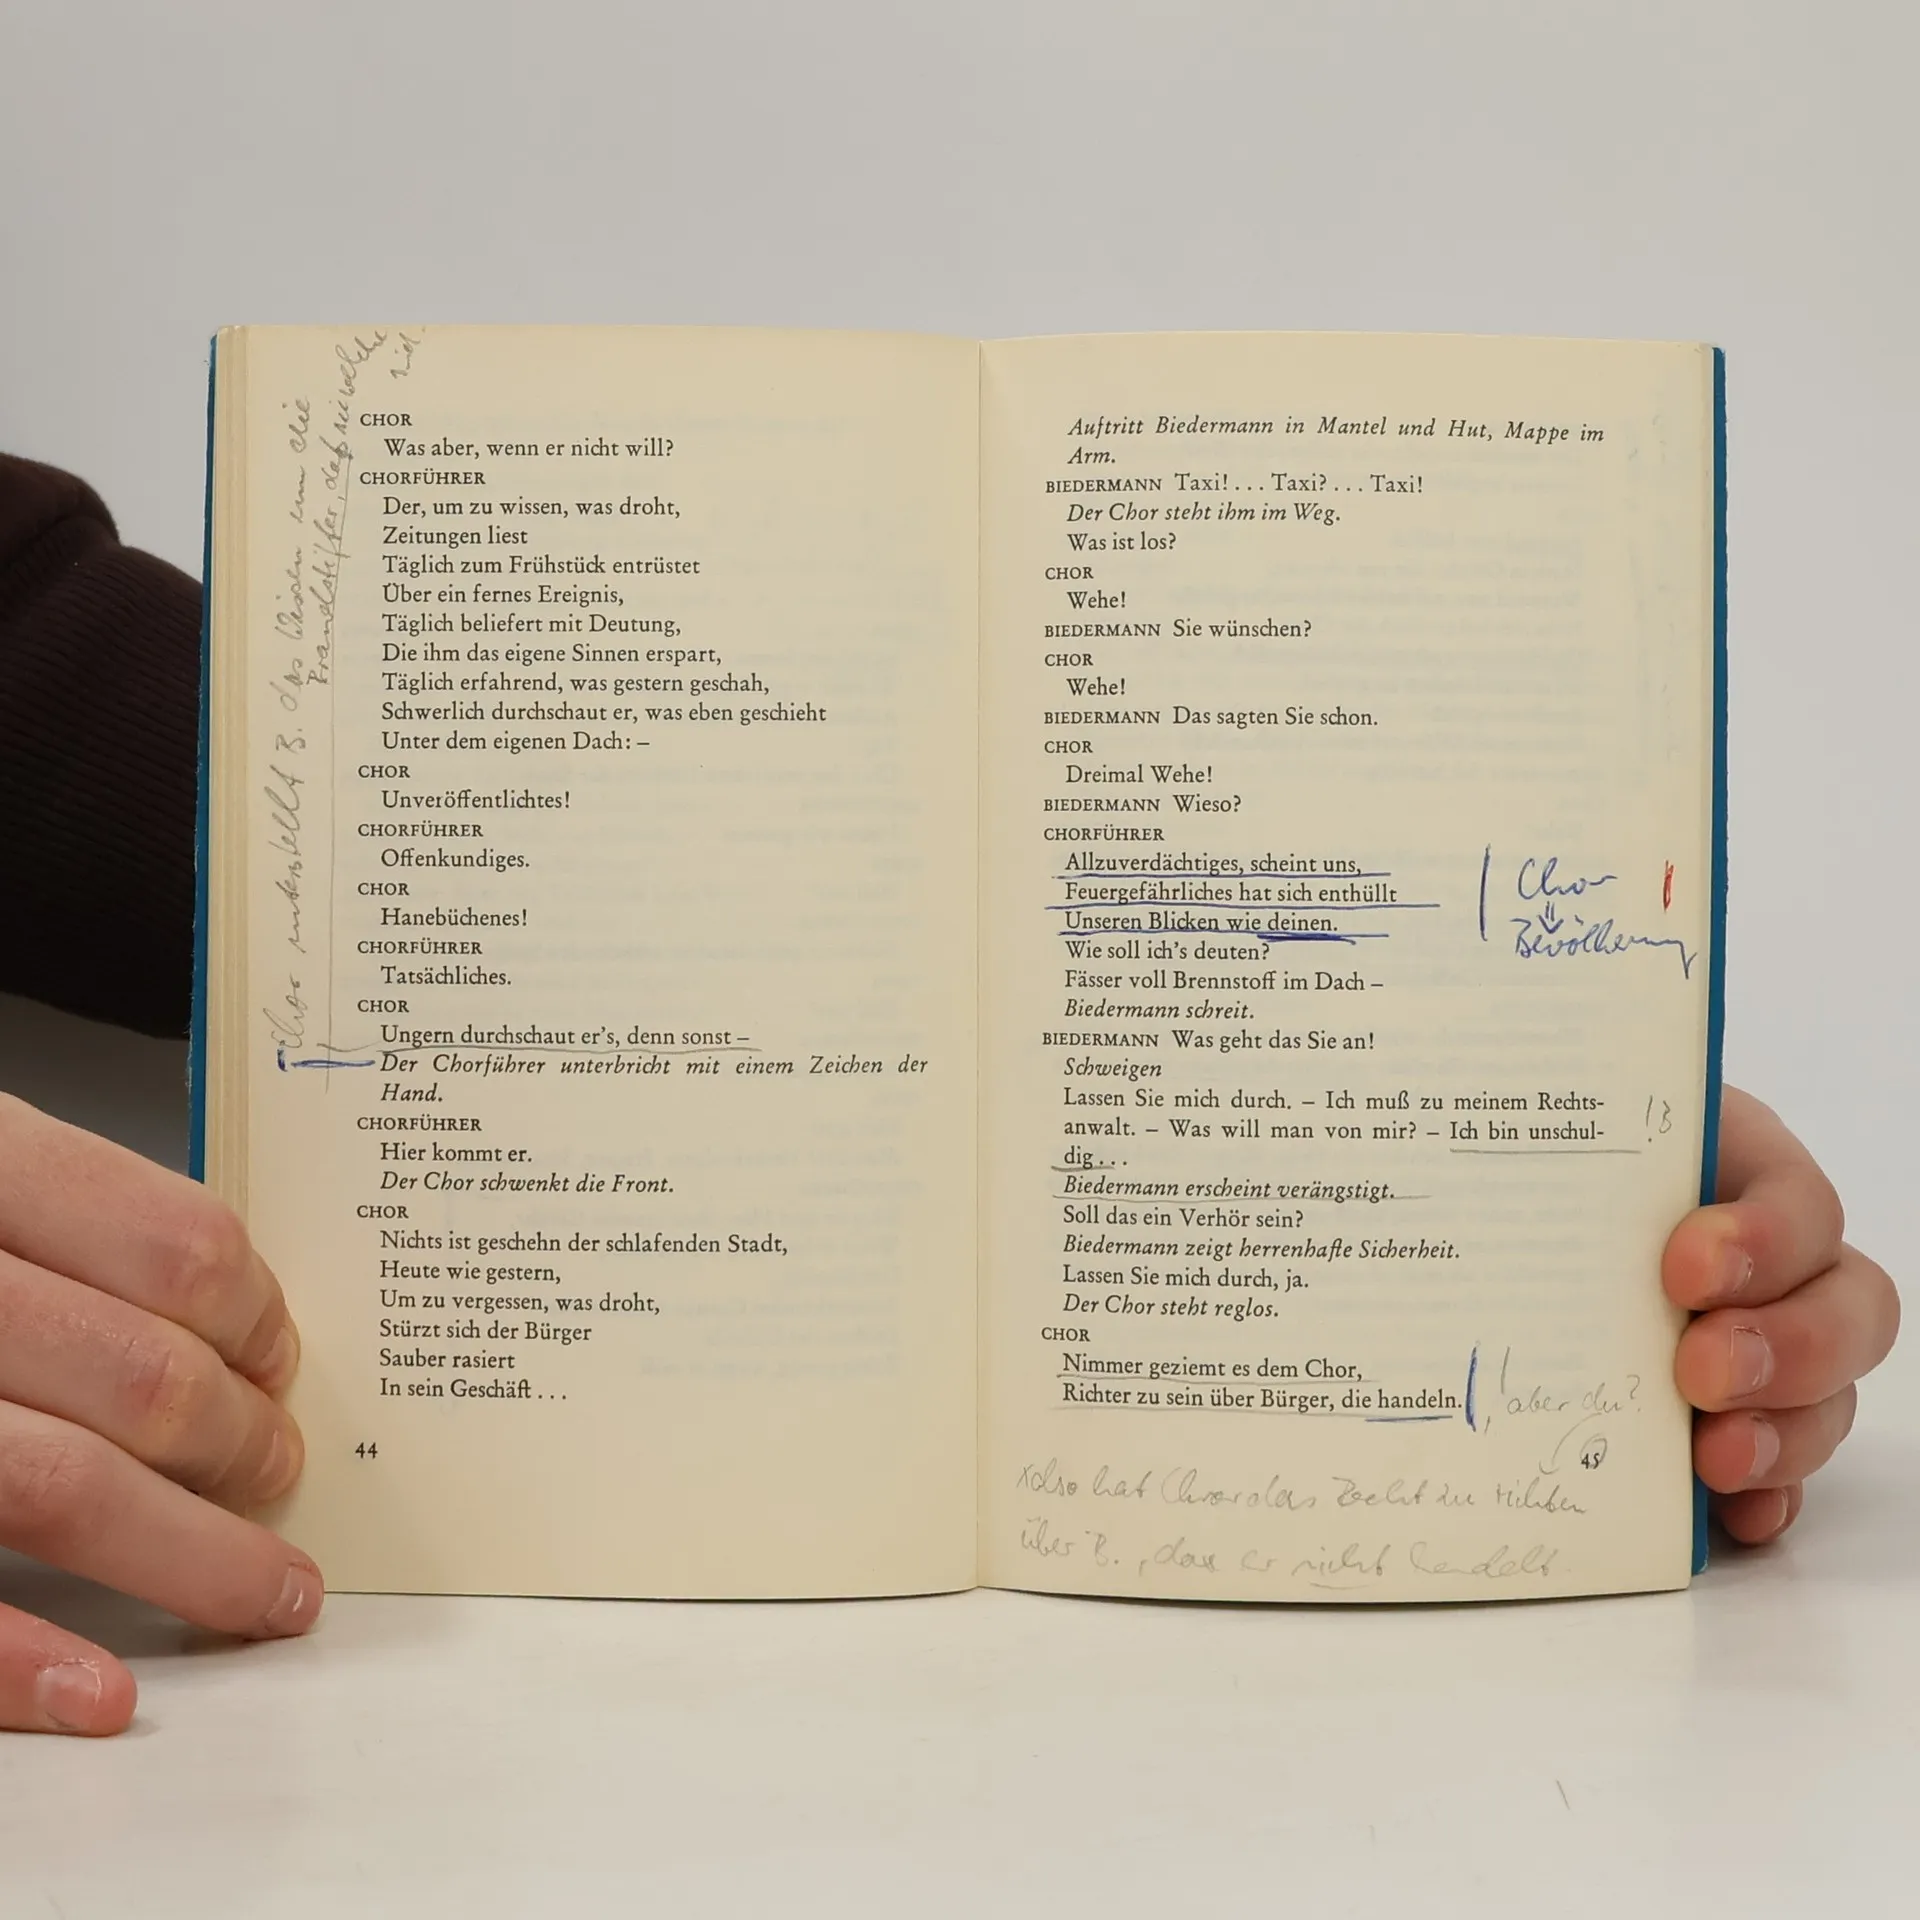 CHOR
Was aber, wenn er nicht will?
CHORFÜHRER
Der, um zu wissen, was droht,
Zeitungen liest
Täglich zum Frühstück entrüstet
Über ein fernes Ereignis,
Täglich beliefert mit Deutung,
Die ihm das eigene Sinnen erspart,
Täglich erfahrend, was gestern geschah,
Schwerlich durchschaut er, was eben geschieht
Unter dem eigenen Dach: –
CHOR
Unveröffentlichtes!
CHORFÜHRER
Offenkundiges.
CHOR
Hanebüchenes!
CHORFÜHRER
Tatsächliches.
CHOR
Ungern durchschaut er's, denn sonst –
Der Chorführer unterbricht mit einem Zeichen der
Hand.
CHORFÜHRER
Hier kommt er.
Der Chor schwenkt die Front.
CHOR
Nichts ist geschehn der schlafenden Stadt,
Heute wie gestern,
Um zu vergessen, was droht,
Stürzt sich der Bürger
Sauber rasiert
In sein Geschäft . . .
44
Chor unterstellt B. das Wissen um die
Brandstifter, daß sie welche
sind
Auftritt Biedermann in Mantel und Hut, Mappe im
Arm.
BIEDERMANN Taxi! . . . Taxi? . . . Taxi!
Der Chor steht ihm im Weg.
Was ist los?
CHOR
Wehe!
BIEDERMANN Sie wünschen?
CHOR
Wehe!
BIEDERMANN Das sagten Sie schon.
CHOR
Dreimal Wehe!
BIEDERMANN Wieso?
CHORFÜHRER
Allzuverdächtiges, scheint uns,
Feuergefährliches hat sich enthüllt
Unseren Blicken wie deinen.
Wie soll ich's deuten?
Fässer voll Brennstoff im Dach –
Biedermann schreit.
BIEDERMANN Was geht das Sie an!
Schweigen
Lassen Sie mich durch. – Ich muß zu meinem Rechts-
anwalt. – Was will man von mir? – Ich bin unschul-
dig . . .
Biedermann erscheint verängstigt.
Soll das ein Verhör sein?
Biedermann zeigt herrenhafte Sicherheit.
Lassen Sie mich durch, ja.
Der Chor steht reglos.
CHOR
Nimmer geziemt es dem Chor,
Richter zu sein über Bürger, die handeln.
Chor
⇓
Bevölkerung
! B
, aber du?
45
also hat Chor das Recht zu richten
über B., das er nicht handelt